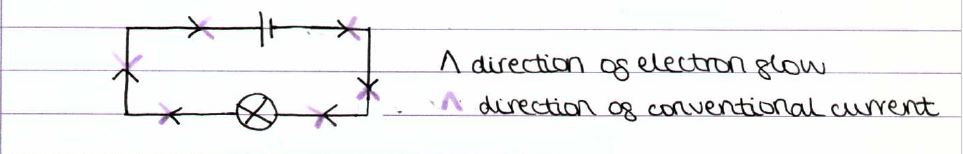 Λ direction of electron flow
Λ direction of conventional current